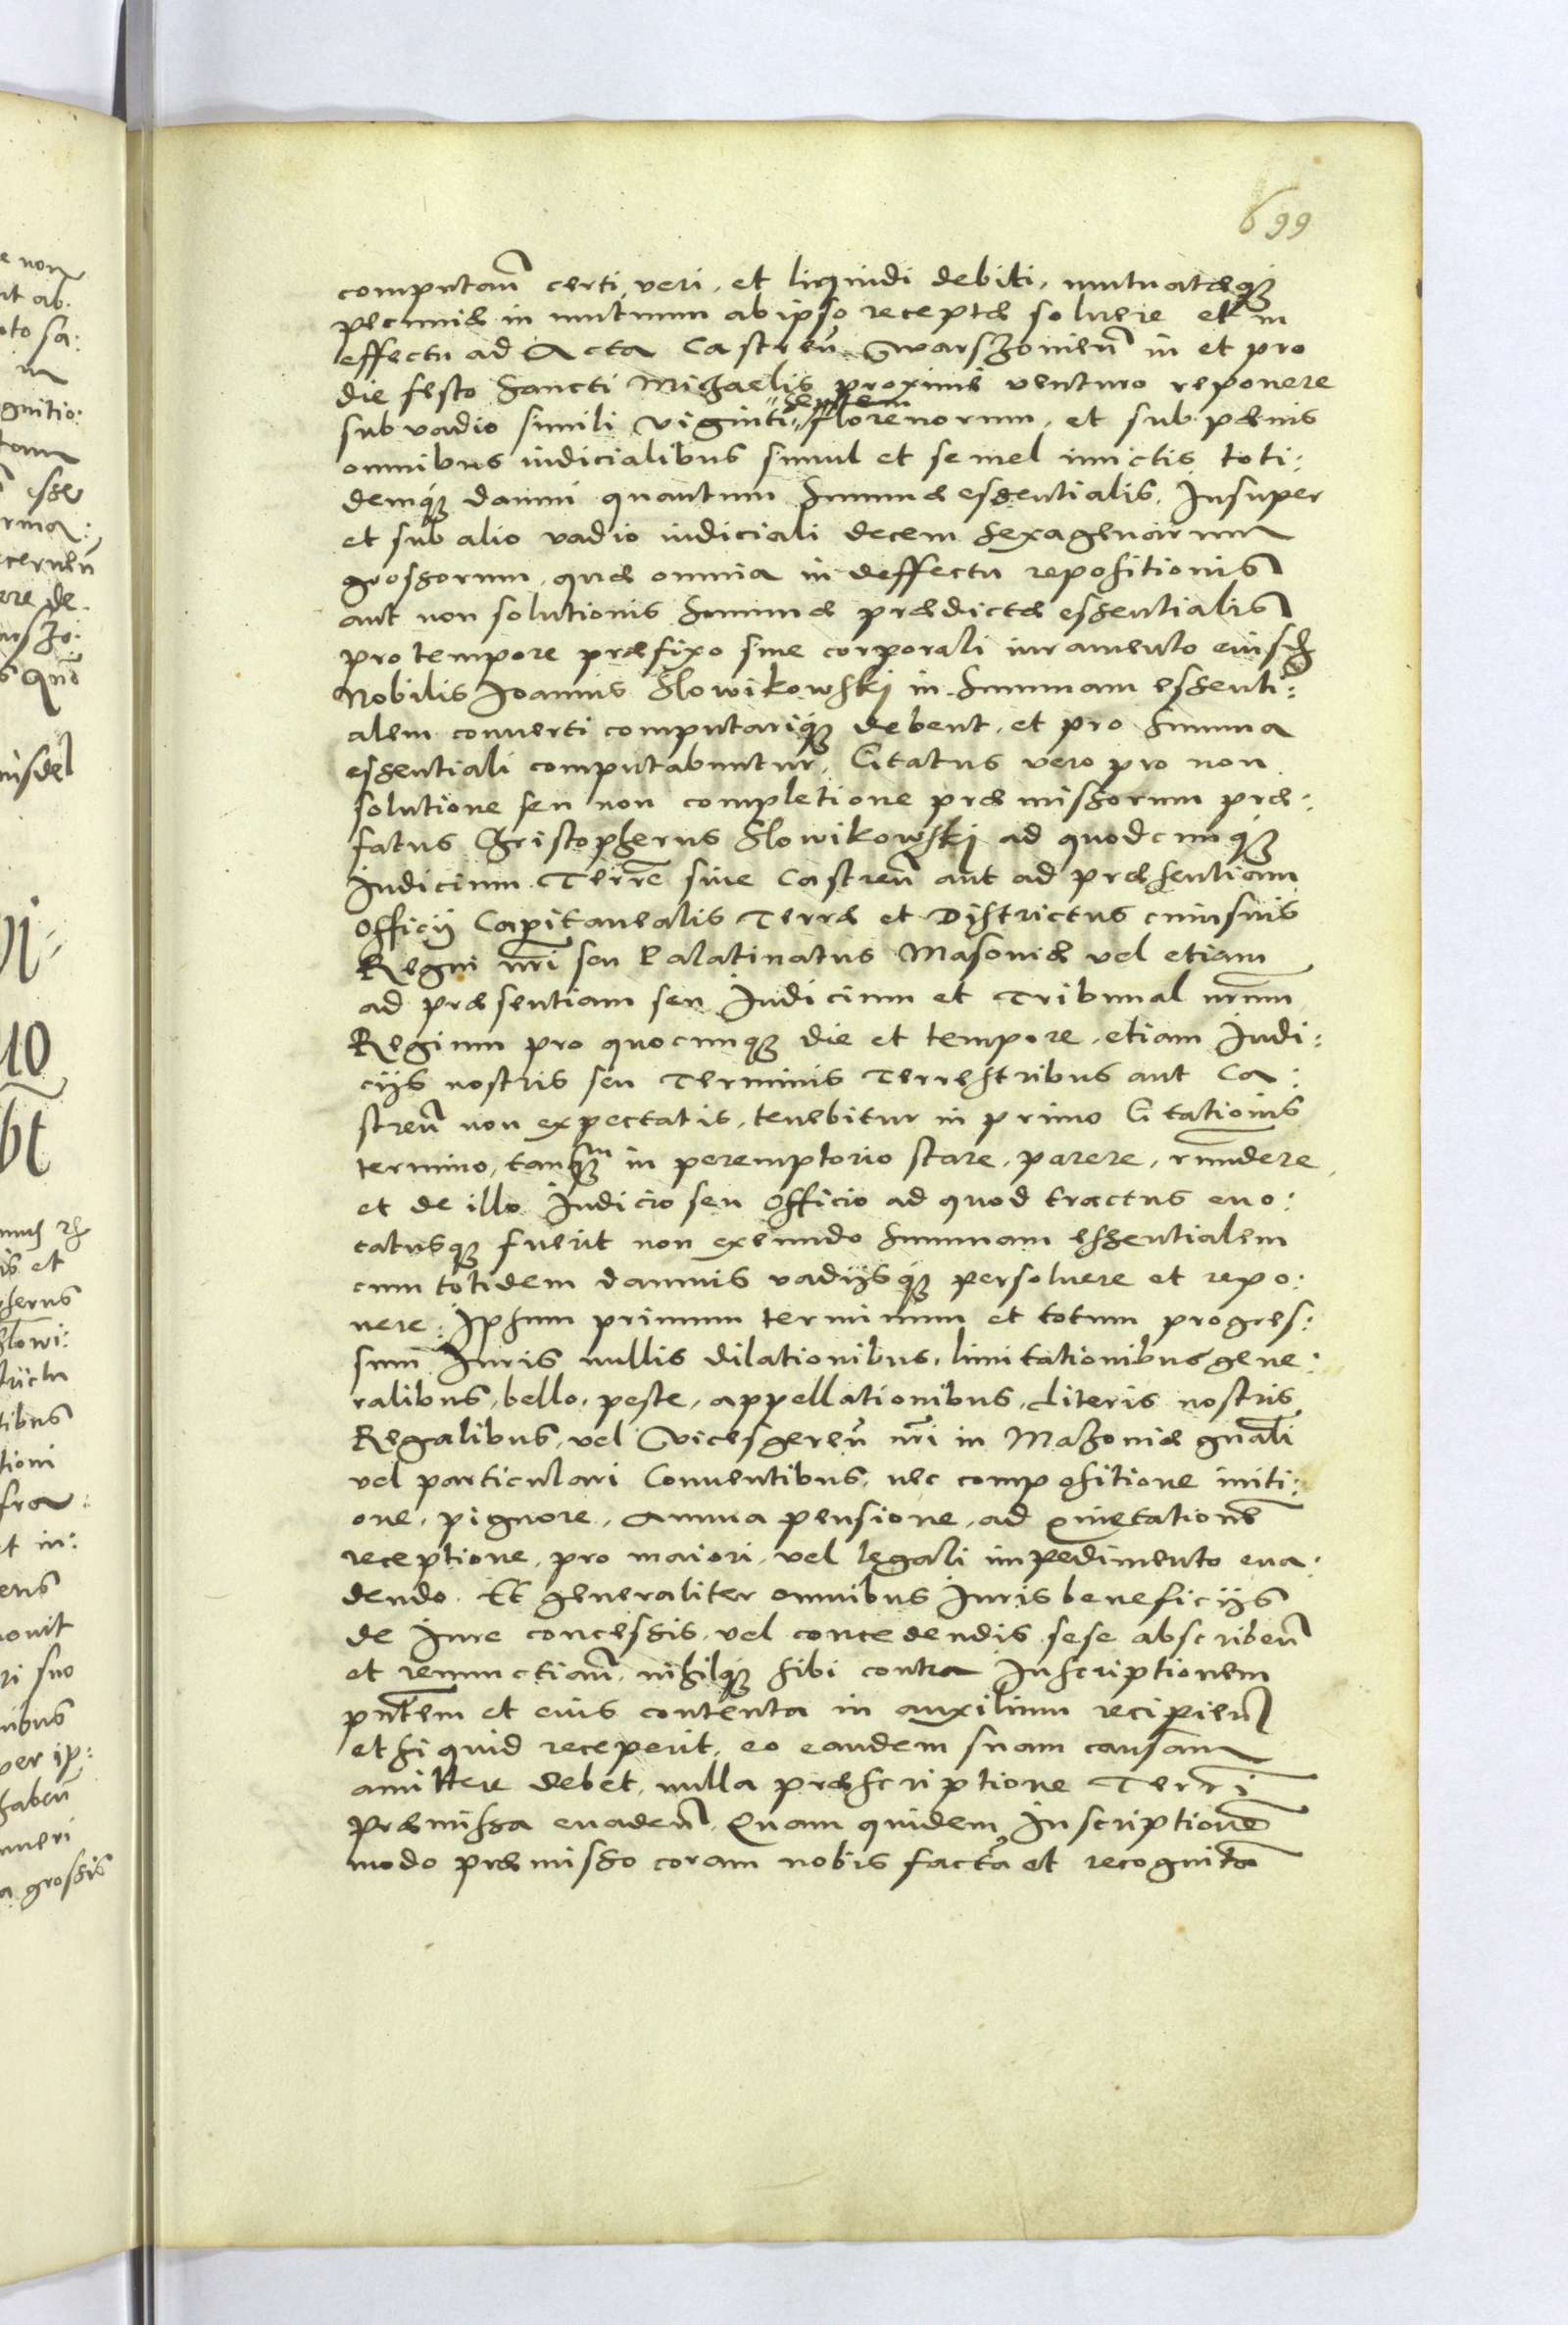 699
computan̄ certi, veri, et liquidi debiti, mutuatæq;
pecuniæ in mutuum ab ipso receptæ soluere et in
effectu ad Acta Castren̄ Warszouien̄ in et pro
die festo Sancti Michaelis proxime venturo reponere
septem
sub vadio simili viginti florenorum, et sub pænis
omnibus iudicialibus simul et semel iniectis toti:
demq; damni quantum Summæ essentialis. Insuper
et sub alio vadio iudiciali decem Sexagenarum
grossorum, quæ omnia in deffectu repositionis
aut non solutionis Summæ prædictæ essentialis
pro tempore præfixo siue corporali iuramento eiusd
Nobilis Joannis Slowikowskj in Summam essenti:
alem conuerti computariq; debent, et pro Summa
essentiali computabuntur. Citatus vero pro non
solutione seu non completione præmissorum præ:
fatus Christopherus Slowikowskj ad quodcunq;
Judicium Terre siue Castren̄ aut ad præsentiam
Officij Capitanealis Terræ et Districtus cuiusuis
Regni nr̄i seu Palatinatus Masouiæ vel etiam
ad præsentiam seu Judicium et Tribunal nr̄um
Regium pro quocunq; die et tempore, etiam Judi:
cijs nostris seu Terminis Terrestribus aut Ca:
stren̄ non expectatis, tenebitur in primo Citationis
termino, tanq;m in peremptorio stare, parere, rn̄dere,
et de illo Judicio seu Officio ad quod tractus euo:
catusq; fuerit non exeundo Summam essentialem
cum totidem damnis vadijsq; persoluere et repo:
nere: Ipsum primum terminum et totum progres:
sum Juris nullis dilationibus, limitationibus gene:
ralibus, bello, peste, appellationibus, Literis nostris
Regalibus, vel Vicesgeren̄ nr̄i in Mazouiæ gn̄ali
vel particulari Conuentibus, nec compositione initi:
one, pignore, Annua pensione, ad quietationē
receptione, pro maiori, vel legali impedimento eua:
dendo. Et generaliter omnibus Juris beneficijs
de Jure concessis, vel concedendis sese abscriben̄
et renunctian̄, nihilq; sibi contra Inscriptionem
pn̄tem et eius contenta in auxilium recipien̄
et si quid receperit, eo eandem suam causam
amittere debet, nulla præscriptione Terri
præmissa euaden̄. Quam quidem Inscriptionē
modo præmisso coram nobis factā et recognitā